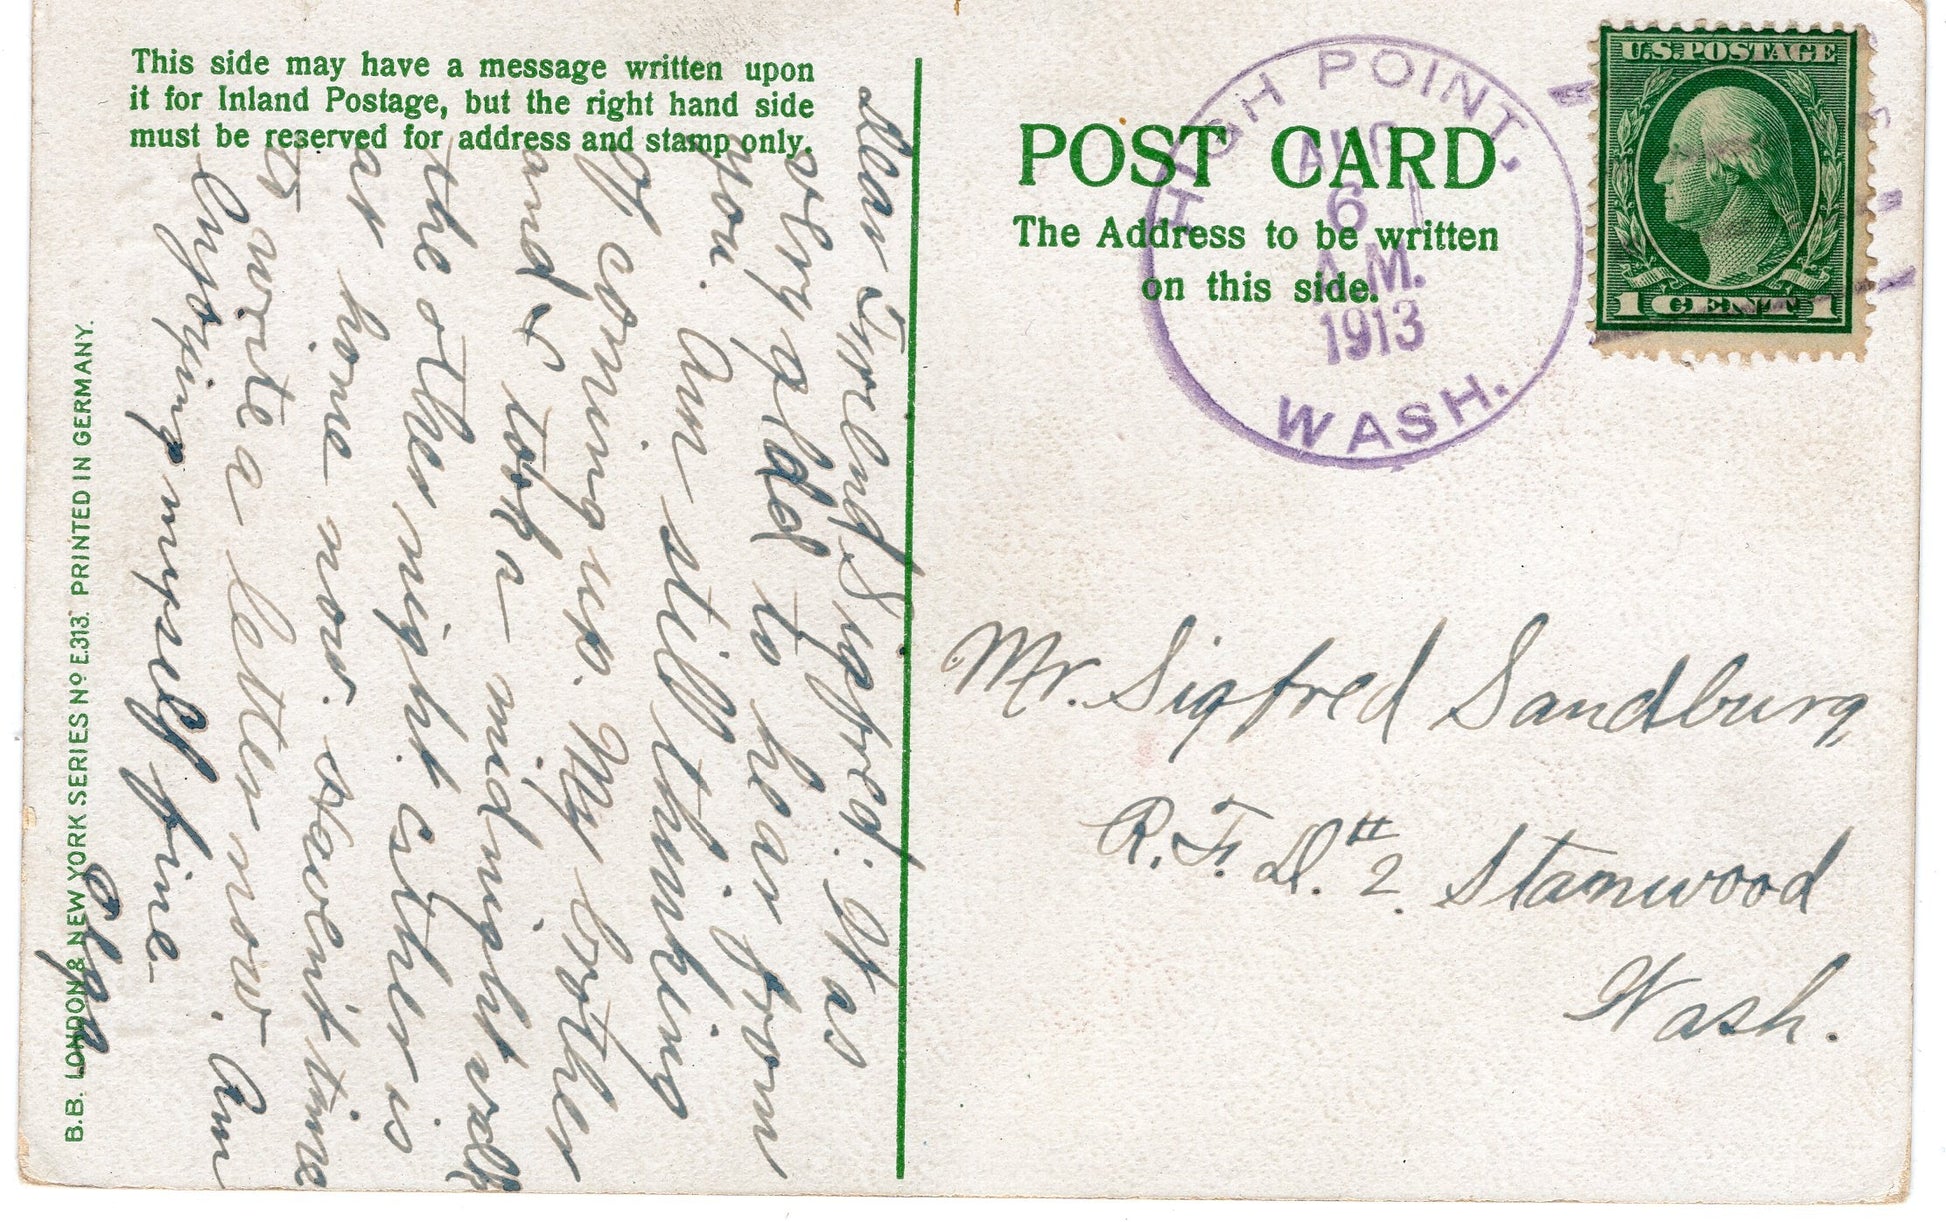 This side may have a message written upon
it for Inland Postage, but the right hand side
must be reserved for address and stamp only.
Dear Friend Sigfred. Was
very glad to hear from
you. Am still thinking
of coming up. My brother
and I took a midnight walk
the other night. Esther is
at home now. Haven't time
to write a letter now. Am
enjoying myself fine
Olga
B.B. LONDON & NEW YORK SERIES No E.313. PRINTED IN GERMANY.
POST CARD
The Address to be written
on this side.
HIGH POINT,
AUG
6
A.M.
1913
WASH.
U.S. POSTAGE
1 CENT 1
Mr. Sigfred Sandburg
R. F. D. # 2. Stanwood
Wash.